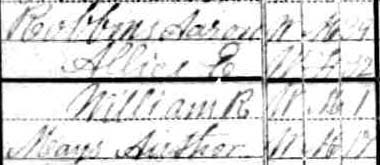 Robbins Aaron W M 29
Allie E W F 22
William R W M 1
Mays Author W M 17